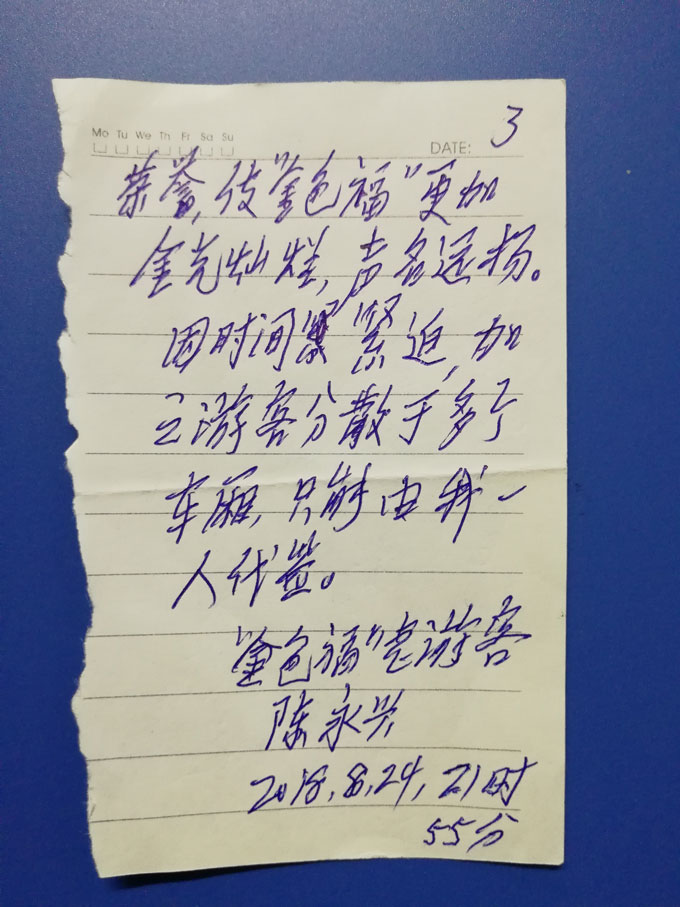 3
Mo Tu We Th Fr Sa Su
DATE:
荣誉,使“金色福”更加
金光灿烂,声名远扬。
因时间紧迫,加
之游客分散于多个
车厢,只能由我一
人代签。
“金色福”老游客
陈永兴
2018,8,24,21时
55分